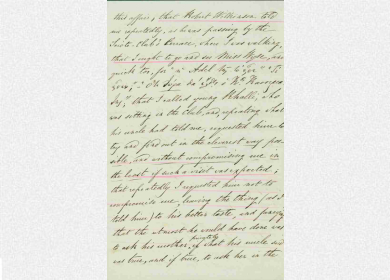 this affair, that Robert Wilkinson, told
me repeatedly, as he was passing by the
Scinde Club's Terrace, where I was walking,
that I ought to go and see Miss Wylie, and
quick too, for
that I called young Nicholl, who
was sitting in the Club, and, repeating what
his uncle had told me, requested him to
try and find out in the cleverest way poss-
ible, and without compromising me in
the least if such a visit was expected,
that repeatedly I requested him not to
compromise me, leaving the thing (as I
told him) to his better taste, and
that the utmost he could have done was
to ask his mother, privately if what his uncle said
was true, and if true, to ask her in the